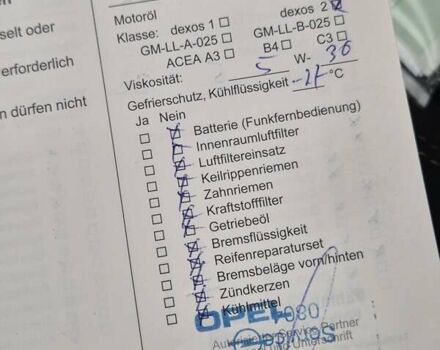 selt oder
erforderlich
n dürfen nicht
Motoröl
Klasse: dexos 1 ☐ dexos 2 ☒
GM-LL-A-025 ☐ GM-LL-B-025 ☐
ACEA A3 ☐ B4 ☐ C3 ☐
Viskosität: 5 W- 30
Gefrierschutz, Kühlflüssigkeit °C
Ja Nein
☐ ☒ Batterie (Funkfernbedienung)
☐ ☒ Innenraumluftfilter
☐ ☒ Luftfiltereinsatz
☐ ☒ Keilrippenriemen
☐ ☒ Zahnriemen
☐ ☒ Kraftstofffilter
☐ ☒ Getriebeöl
☐ ☒ Bremsflüssigkeit
☐ ☒ Reifenreparaturset
☐ ☒ Bremsbeläge vorn/hinten
☐ ☒ Zündkerzen
☐ ☒ Kühlmittel
OPEL
Service Partner
Unterschrift